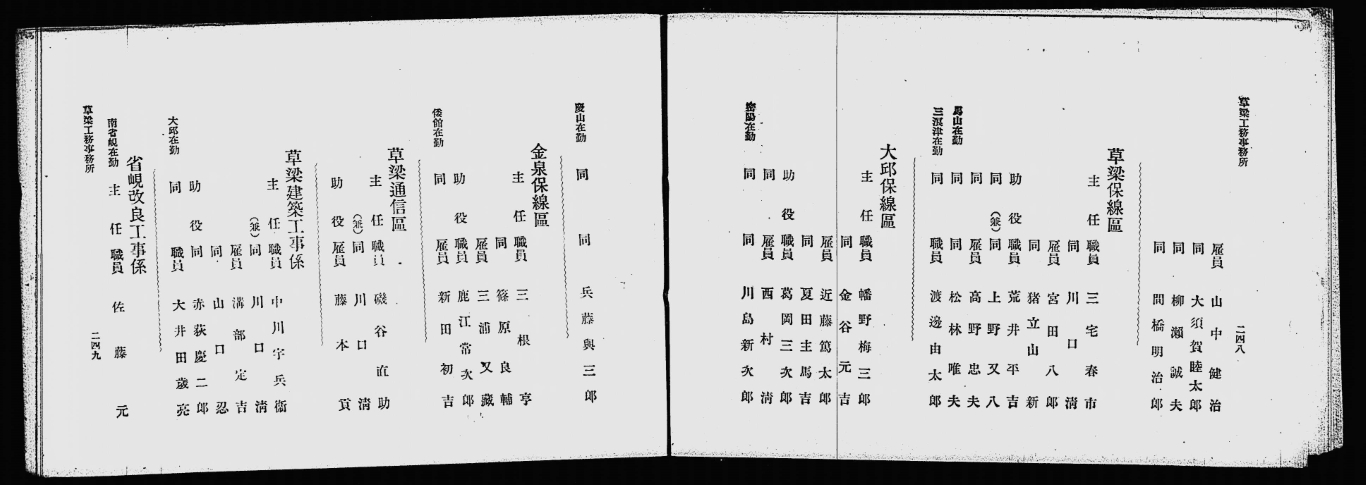 草梁工務事務所
二四八
雇員 山中健治
同 大須賀睦太郎
同 柳瀬誠夫
同 間橋明治郎
草梁保線區
主任 職員 三宅春市
同 川口淸
雇員 宮田八郎
同 猪立山新
助役 職員 荒井平吉
同 (兼)同 上野又八
馬山在勤 同 雇員 高野忠夫
同 同 松林唯夫
三浪津在勤 同 職員 渡邊由太郎
大邱保線區
主任 職員 幡野梅三郎
同 金谷元吉
雇員 近藤篤太郎
同 夏田主馬吉
助役 職員 葛岡三次郎
同 雇員 西村淸
密陽在勤 同 同 川島新次郎
慶山在勤 同 同 兵藤與三郎
金泉保線區
主任 職員 三根亨
同 篠原良輔
雇員 三浦又藏
助役 職員 鹿江常次郎
倭館在勤 同 雇員 新田初吉
草梁通信區
主任 職員 磯谷直助
(兼)同 川口淸
助役 雇員 藤本貢
草梁建築工事係
主任 職員 中川宇兵衞
(兼)同 川口淸
雇員 溝部定吉
同 山口忍
助役 同 赤荻慶二郎
大邱在勤 同 職員 大井田歲亮
省峴改良工事係
南省峴在勤 主任 職員 佐藤元
草梁工務事務所
二四九